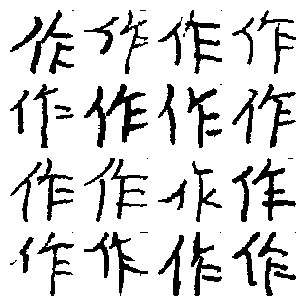 作作作作
作作作作
作作作作
作作作作